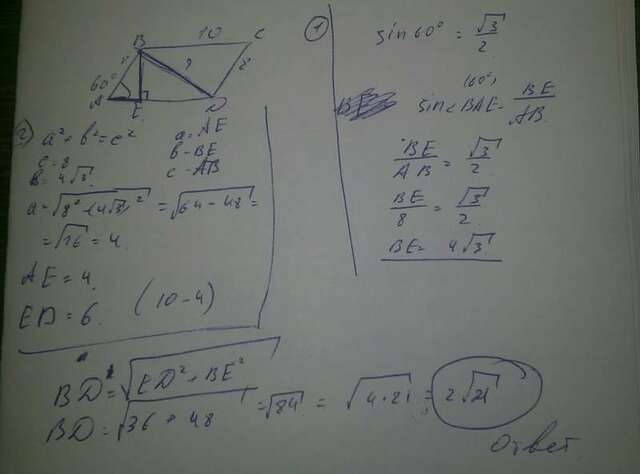 10
B C
8 ? 8
60°
A E D
①
sin 60° = √3/2
(60°)
sin∠BAE = BE/AB
BE/AB = √3/2
BE/8 = √3/2
BE = 4√3
②
a² + b² = c² a = AE
c = 8 b - BE
b = 4√3 c - AB
a = √8² - (4√3)² = √64 - 48 =
= √16 = 4
AE = 4
ED = 6 (10 - 4)
BD = √ED² + BE²
BD = √36 + 48 = √84 = √4·21 = 2√21
Ответ